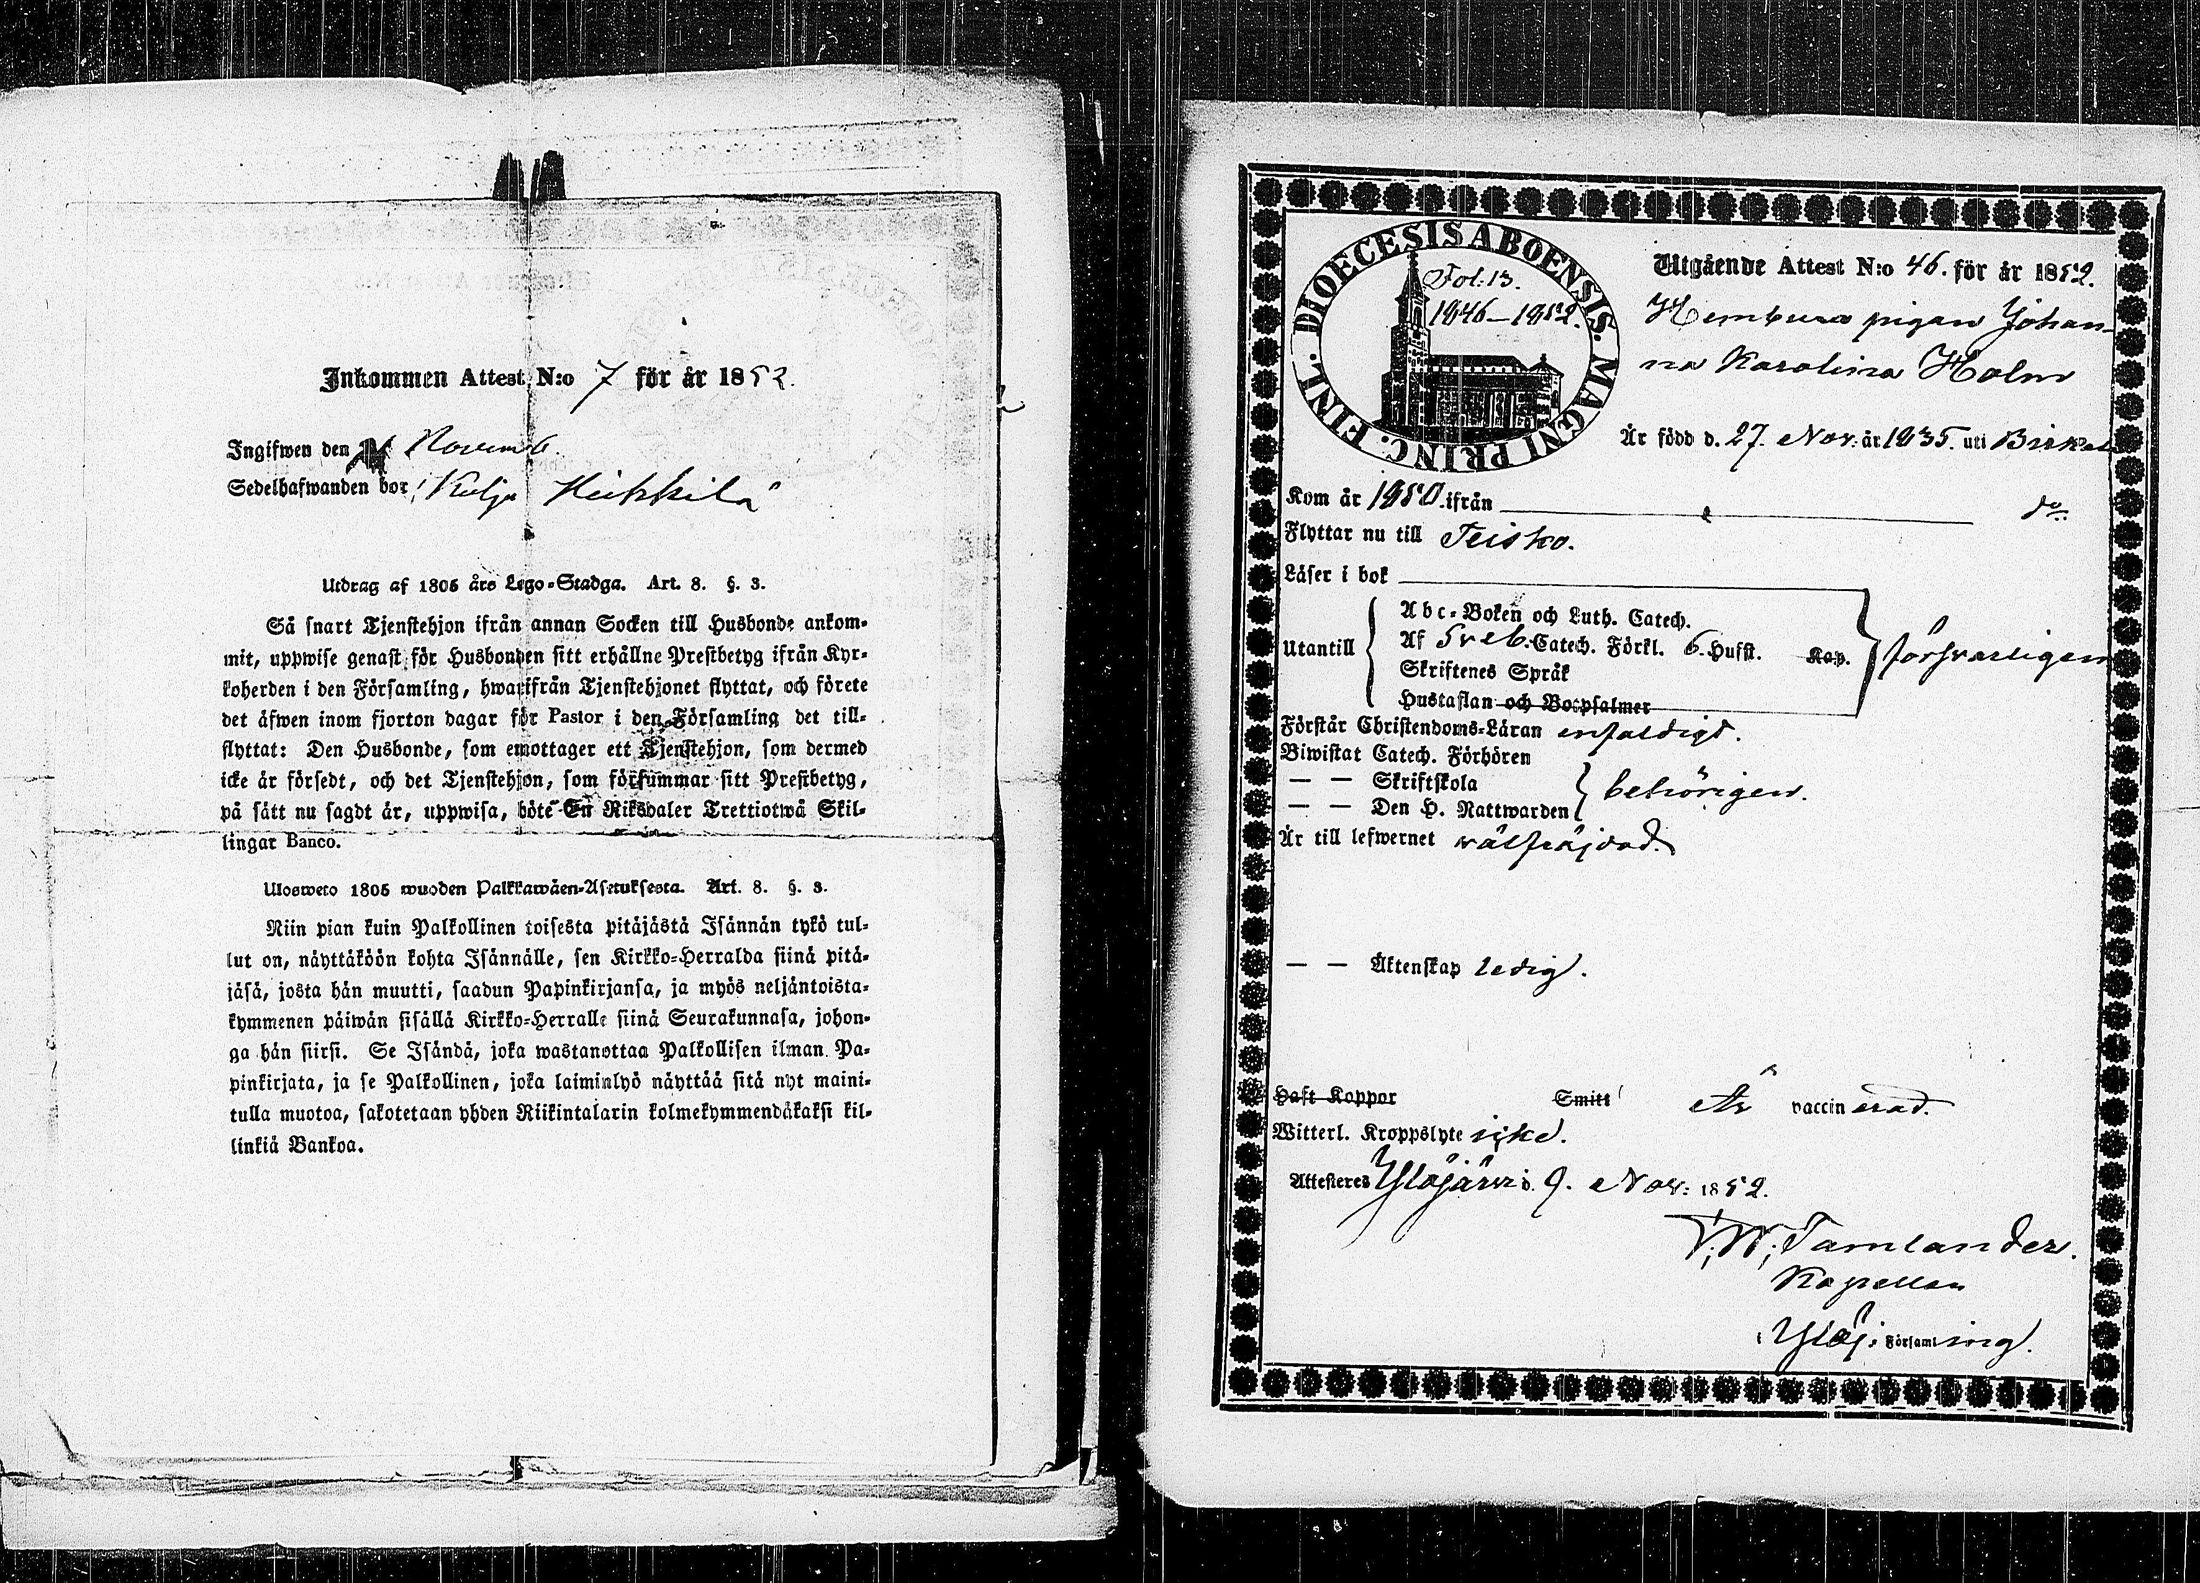 Inkommen Attest N:o 7 för år 1852.
Ingifwen den Novemb.
Sedelhafwanden bor i Kulju Heikkilä
Utdrag af 1805 års Lego-Stadga. Art. 8. §. 3.
Så snart Tjenstehjon ifrån annan Socken till Husbonde ankom-
mit, uppwise genast för Husbonden sitt erhållne Prestbetyg ifrån Kyr-
koherden i den Församling, hwarifrån Tjenstehjonet flyttat, och förete
det äfwen inom fjorton dagar för Pastor i den Församling det till-
flyttat: Den Husbonde, som emottager ett Tjenstehjon, som dermed
icke är försedt, och det Tjenstehjon, som försummar sitt Prestbetyg,
på sätt nu sagdt är, uppwisa, böte En Riksdaler Trettiotwå Skil-
lingar Banco.
Ulosweto 1805 wuoden Palkkawäen-Asetuksesta. Art. 8. §. 3.
Niin pian kuin Palkollinen toisesta pitäjästä Isännän tykö tul-
lut on, näyttäköön kohta Isännälle, sen Kirkko-Herralda siinä pitä-
jäsä, josta hän muutti, saadun Papinkirjansa, ja myös neljäntoista-
kymmenen päiwän sisällä Kirkko-Herralle siinä Seurakunnasa, johon-
ga hän siirsi. Se Isändä, joka wastanottaa Palkollisen ilman Pa-
pinkirjata, ja se Palkollinen, joka laiminlyö näyttää sitä nyt maini-
tulla muotoa, sakotetaan yhden Riikintalarin kolmekymmendäkaksi kil-
linkiä Bankoa.
DIOECESIS ABOENSIS. MAGNI PRINC. FINL.
Fol: 13.
1846-1852.
Utgående Attest N:o 46. för år 1852.
pigan Johan-
na Karolina Holm
Är född d. 27. Nov: år 1835. uti Birkala
Kom år 1850. ifrån do.
Flyttar nu till Teisko.
Läser i bok
Utantill
Abc-Boken och Luth. Catech.
Af 5 Catech. Förkl. 6. Husst. Kap.
Skriftenes Språk
Hustaflan och Botpsalmer
försvarligen
Förstår Christendoms-Läran enfaldigt.
Biwistat Catech. Förhören
— — Skriftskola
— — Den H. Nattwarden
behörigen.
Är till lefwernet wälfräjdad.
— — Äktenskap ledig.
Haft Koppor Smitt Är vaccinerad.
Witterl. Kroppslyte icke.
Attesteres Ylöjärvi d. 9. Nov: 1852.
Tamlander.
Kapellan
i Ylöj. Församling.